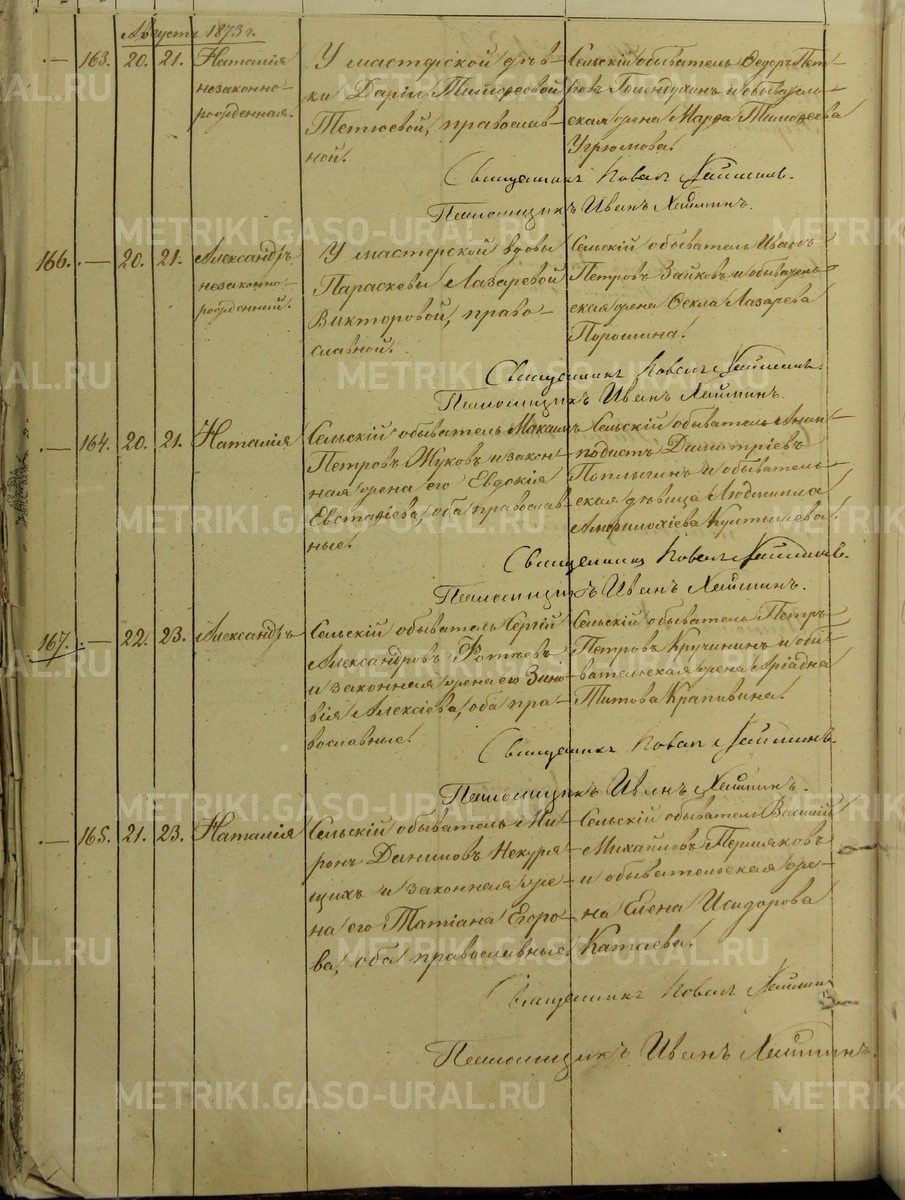 Августъ 1873 г.
— 163. 20. 21. Наталія незаконно-рожденная.
У мастерской дѣв-
ки Даріи Тимоѳеевой
Тетюевой, православ-
ной.
Сельскій обыватель Ѳедоръ Пет-
ровъ Голендухинъ и обыватель-
ская жена Марѳа Тимоѳеева
Угрюмова.
Священникъ
Псаломщикъ Иванъ
166. — 20. 21. Александръ
незаконно-
рожденный.
У мастерской вдовы
Параскевы Лазаревой
Викторовой, право-
славной.
Сельскій обыватель Иванъ
Петровъ Зайковъ и обыватель-
ская жена Ѳекла Лазарева
Порошина.
Священникъ
Псаломщикъ Иванъ
— 164. 20. 21. Наталія
Сельскій обыватель Максимъ
Петровъ Жуковъ и закон-
ная жена его Евдокія
Евстафіева, оба православ-
ные.
Сельскій обыватель Анем-
подистъ Димитріевъ
и обыватель-
ская дѣвица Людмила
Амфилохіева Култышева.
Священникъ
Псаломщикъ Иванъ
167. — 22. 23. Александръ
Сельскій обыватель Сергій
Александровъ Фотѣевъ
и законная жена его Зино-
вія Алексіева, оба пра-
вославные.
Сельскій обыватель Петръ
Петровъ Кручининъ и обы-
вательская жена Аріадна
Титова Крапивина.
Священникъ
Псаломщикъ Иванъ
— 165. 21. 23. Наталія
Сельскій обыватель Ми-
ронъ Даниловъ Некуря-
щихъ и законная же-
на его Татіана Егоро-
ва, оба православные.
Сельскій обыватель Василій
Михайловъ Пермяковъ
и обывательская же-
на Елена Исидорова
Катаева.
Священникъ
Псаломщикъ Иванъ
METRIKI.GASO-URAL.RU